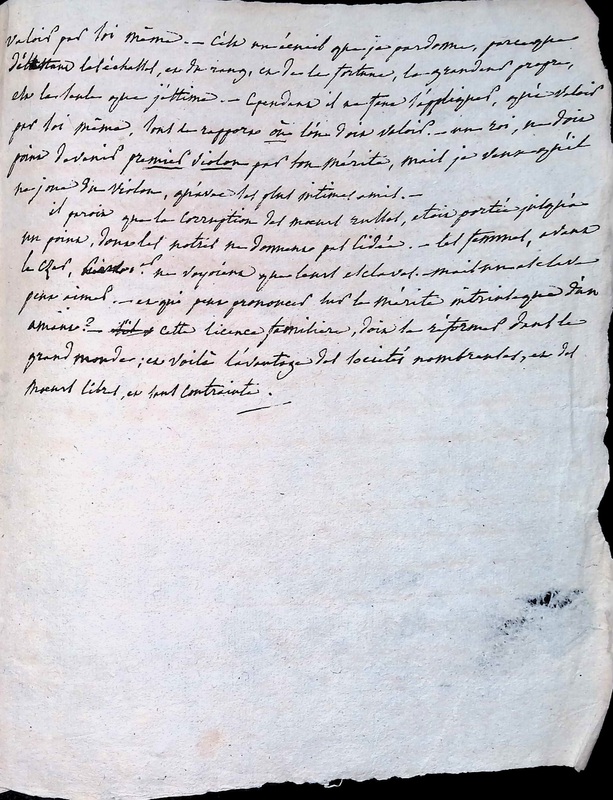 valoir par soi même. — C'est un écueil que je pardonne, parceque
les échelles, en du rang, en de la fortune, la grandeur propre,
est la seule que j'estime. — Cependant il ne faut s'appliquer, qu'à valoir
par soi même, tout se rapporte où l'on doit valoir. — un roi, ne doit
point devenir premier violon par son mérite, mais je veux qu'il
ne joue du violon, qu'avec ses plus intimes amis. —
il paroit que la corruption des mœurs russes, étoit portée jusqu'à
un point, dont les notres ne donnent pas l'idée. — les femmes, avant
le Czar, ne voyoient que leurs esclaves. — mais un esclave
peut aimer. — et qui peut prononcer sur le mérite intrinseque d'un
amant? — cette licence familiere, doit se réformer dans le
grand monde; et voilà l'avantage des societés nombreuses, et des
mœurs libres, et sans contrainte.